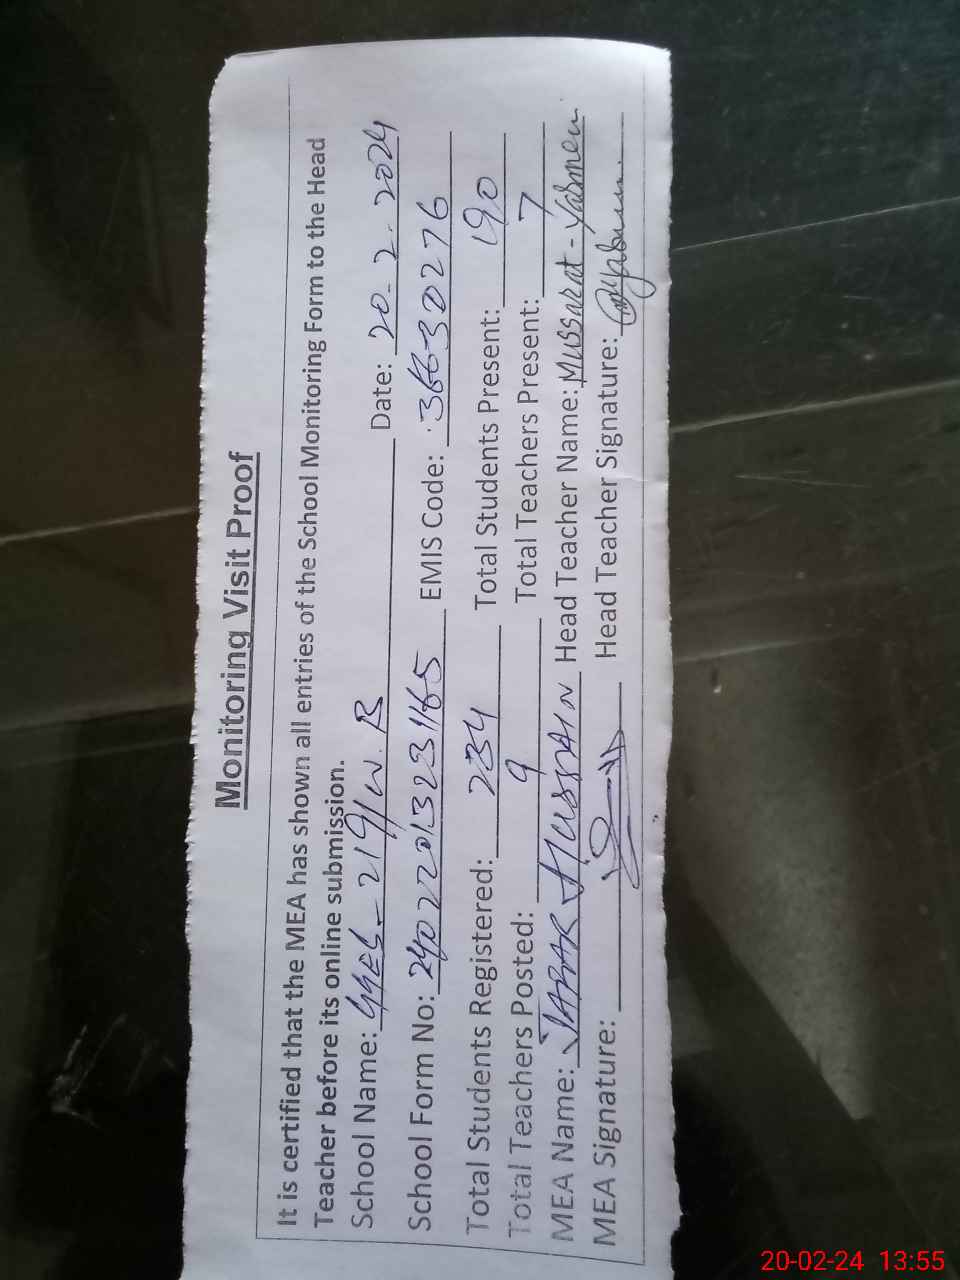 Monitoring Visit Proof
It is certified that the MEA has shown all entries of the School Monitoring Form to the Head
Teacher before its online submission.
School Name: GGES - 219/W.B Date: 20-2-2024
School Form No: 2402201323165 EMIS Code: 36630276
Total Students Registered: 234 Total Students Present: 190
Total Teachers Posted: 9 Total Teachers Present: 7
MEA Name: JABAR HUSSNAIN Head Teacher Name: Mussarat-Yasmeen
MEA Signature: Head Teacher Signature:
20-02-24 13:55